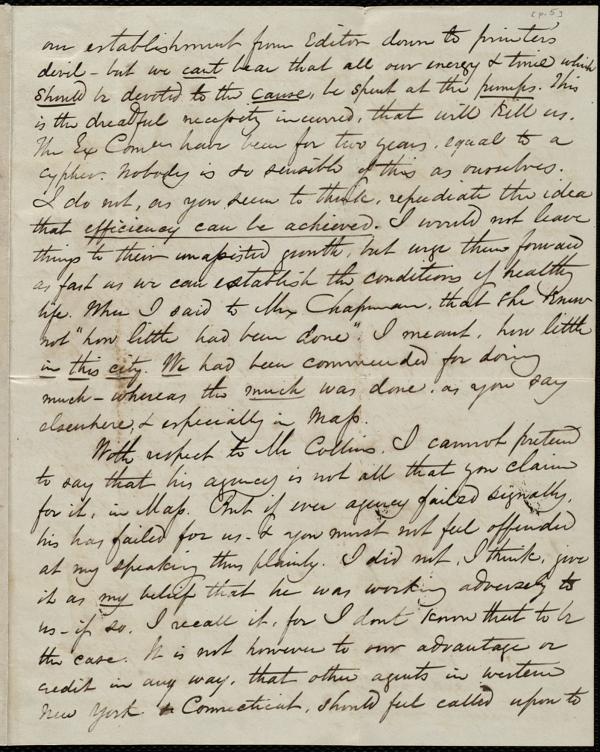 [p. 5]
our establishment from Editor down to printers
devil - but we cant bear that all our energy & time which
should be devoted to the cause, be spent at the pumps. This
is the dreadful necessity incurred, that will kill us.
The Ex Comee have been for two years, equal to a
cypher. Nobody is so sensible of this as ourselves.
I do not, as you seem to think, repudiate the idea
that efficiency can be achieved. I would not leave
things to their unassisted growth, but urge them forward
as fast as we can establish the conditions of healthy
life. When I said to Mrs Chapman, that she knew
not "how little had been done". I meant, how little
in this city. We had been commended for doing
much - whereas the much was done, as you say
elsewhere, & especially in Mass.
With respect to Mr Collins, I cannot pretend
to say that his agency is not all that you claim
for it, in Mass. But if ever agency failed signally,
his has failed for us - & you must not feel offended
at my speaking thus plainly. I did not, I think, give
it as my belief that he was working adversely to
us - if so, I recall it, for I dont know that to be
the case. It is not however to our advantage or
credit in any way, that other agents in western
New York & Connecticut, should feel called upon to